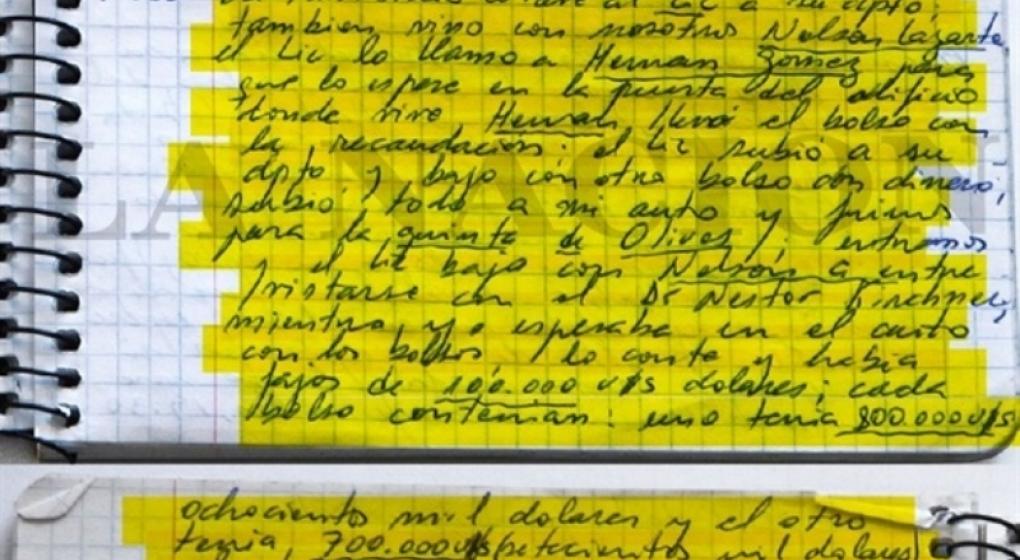 al Lic a su dpto;
tambien vino con nosotros Nelson Lazarte
el Lic lo llamo a Hernan Gomez para
que lo espere en la puerta del edificio
donde vive Hernan llevó el bolso con
la recaudación; el Lic subió a su
dpto y bajo con otro bolso con dinero;
subio todo a mi auto y fuimos
para la quinta de Olivos; entramos
y el Lic bajo con Nelson a entre
/vistarse con el Dr Nestor Kirchner,
mientras yo esperaba en el auto
con los bolsos, lo conte y habia
fajos de 100.000 u/s dolares; cada
bolso contenian: uno tenia 800.000 u/s
ochocientos mil dolares y el otro
tenia, 700.000 u/s setecientos mil dolares
LA NACION